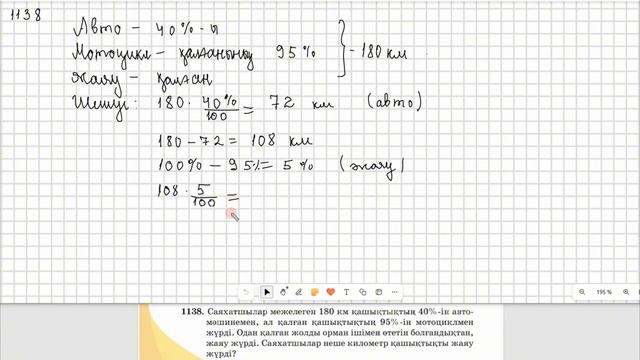 1138
Авто – 40%-ы
Мотоцикл – қалғанының 95% – 180 км
Жаяу – қалған
Шешуі: 180 · 40%/100 = 72 км (авто)
180 – 72 = 108 км
100% – 95% = 5% (жаяу)
108 · 5/100 =
195 %
1138. Саяхатшылар межелеген 180 км қашықтықтың 40%-ін авто-
машинемен, ал қалған қашықтықтың 95%-ін мотоциклмен
жүрді. Одан қалған жолды орман ішімен өтетін болғандықтан,
жаяу жүрді. Саяхатшылар неше километр қашықтықты жаяу
жүрді?